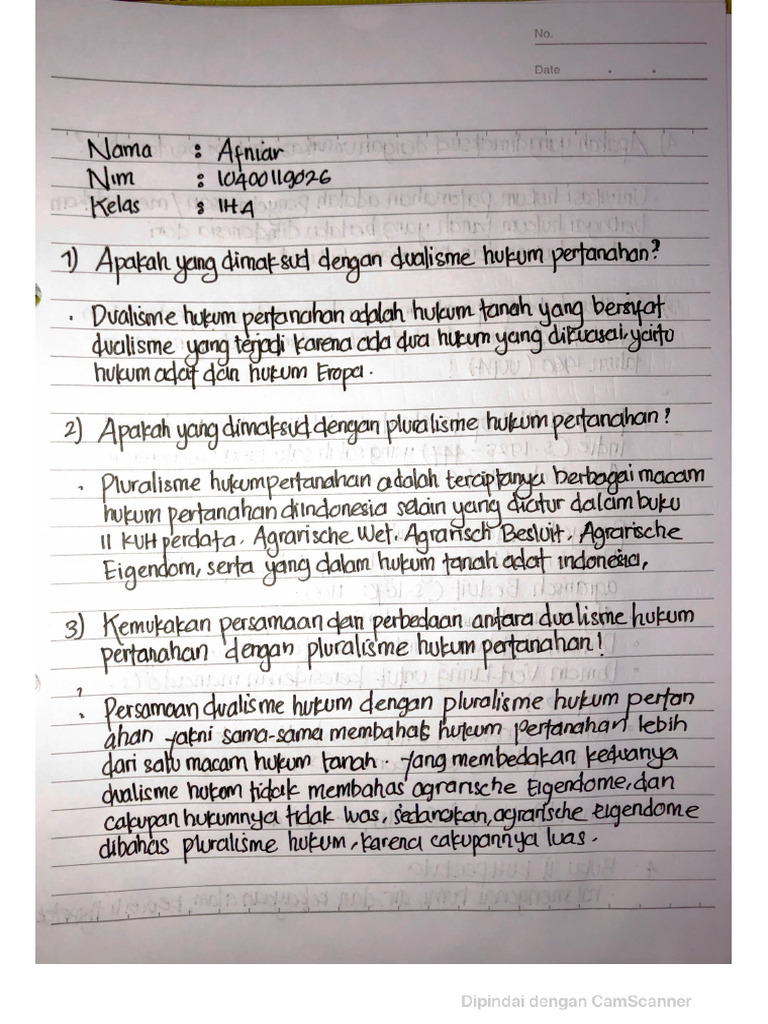 No.
Date
Nama : Afniar
Nim : 10400119026
Kelas : IH A
1) Apakah yang dimaksud dengan dualisme hukum pertanahan?
. Dualisme hukum pertanahan adalah hukum tanah yang bersifat
dualisme yang terjadi karena ada dua hukum yang dikuasai, yaito
hukum adat dan hukum Eropa.
2) Apakah yang dimaksud dengan pluralisme hukum pertanahan?
. Pluralisme hukum pertanahan adalah terciptanya berbagai macam
hukum pertanahan diIndonesia selain yang diatur dalam buku
II KUH perdata, Agrarische Wet, Agrarisch Besluit, Agrarische
Eigendom, serta yang dalam hukum tanah adat indonesia,
3) Kemukakan persamaan dan perbedaan antara dualisme hukum
pertanahan dengan pluralisme hukum pertanahan!
?
. Persamaan dualisme hukum dengan pluralisme hukum pertan
ahan yakni sama-sama membahas hukum pertanahan lebih
dari satu macam hukum tanah. Yang membedakan keduanya
dualisme hukom tidak membahas agrarische Eigendome, dan
cakupan hukumnya tidak luas, sedangkan, agrarische eigendome
dibahas pluralisme hukum, karena cakupannya luas.
Dipindai dengan CamScanner